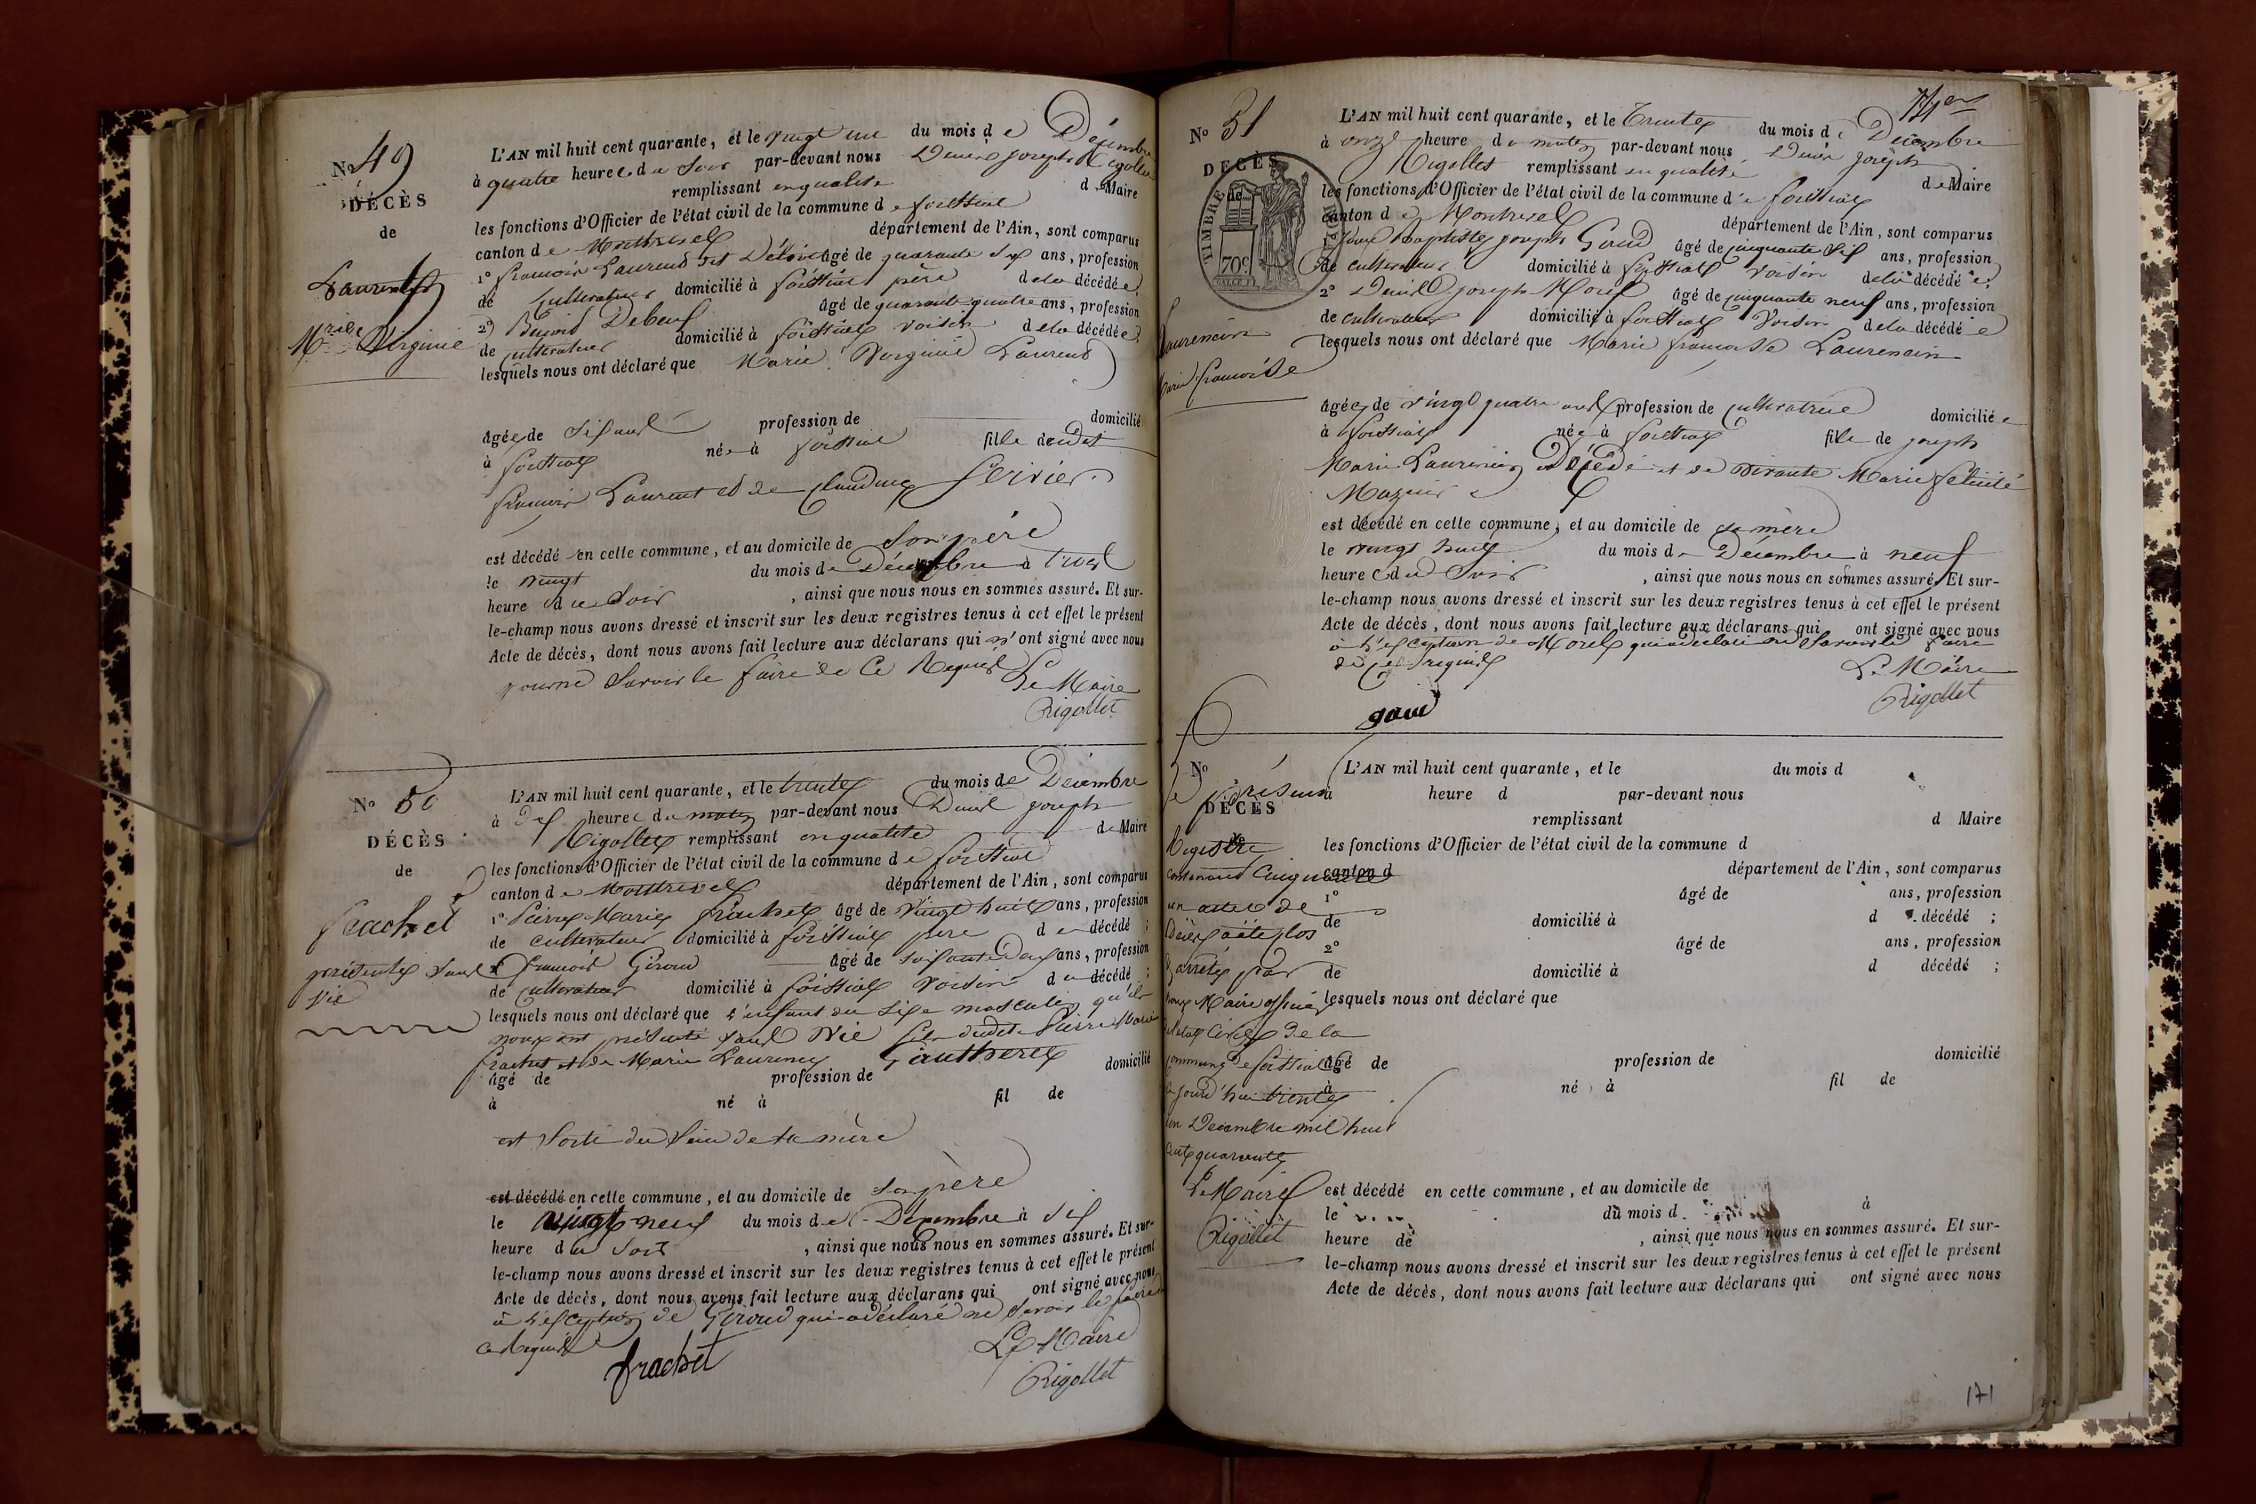 No 49
DÉCÈS
de
Laurent
Mrie Virginie
L'AN mil huit cent quarante, et le vingt un du mois de Décembre
à quatre heure du Soir par-devant nous Denis Joseph Rigollet
remplissant en qualité de Maire
les fonctions d'Officier de l'état civil de la commune de foissiat
canton de Montrevel département de l'Ain, sont comparus
1° françois Laurent dit âgé de quarante six ans, profession
de Cultivateur domicilié à foissiat père de la décédée,
2° Benoit Debeuf âgé de quarante quatre ans, profession
de cultivateur domicilié à foissiat voisin de la décédée
lesquels nous ont déclaré que Marie Virginie Laurent
âgée de six ans profession de domicilié
à foissiat née à foissiat fille dudit
françois Laurent et de Claudine
est décédé en cette commune, et au domicile de Son père
le vingt du mois de Décembre à trois
heure du Soir, ainsi que nous nous en sommes assuré. Et sur-
le-champ nous avons dressé et inscrit sur les deux registres tenus à cet effet le présent
Acte de décès, dont nous avons fait lecture aux déclarans qui n'ont signé avec nous
pour ne Savoir le faire de Ce Requis
Le Maire
Rigollet
No 50
DÉCÈS
de
frachet
présenté sans
vie
L'AN mil huit cent quarante, et le trente du mois de Décembre
à dix heure du matin par-devant nous Denis Joseph
Rigollet remplissant en qualité de Maire
les fonctions d'Officier de l'état civil de la commune de foissiat
canton de Montrevel département de l'Ain, sont comparus
1° Pierre Marie frachet âgé de vingt huit ans, profession
de cultivateur domicilié à foissiat père du décédé;
2° françois Giroud âgé de soixante deux ans, profession
de cultivateur domicilié à foissiat voisin du décédé;
lesquels nous ont déclaré que l'enfant du sexe masculin qu'ils
nous ont présenté sans vie fils dudit Pierre Marie
frachet et de Marie Laurence Gautheret
âgé de profession de domicilié
à né à fil de
est Sorti du Sein de sa mère
est décédé en cette commune, et au domicile de Son père
le vingt neuf du mois de Décembre à six
heure du Soir, ainsi que nous nous en sommes assuré. Et sur-
le-champ nous avons dressé et inscrit sur les deux registres tenus à cet effet le présent
Acte de décès, dont nous avons fait lecture aux déclarans qui ont signé avec nous
à l'exception de Giroud qui a déclaré ne Savoir le faire de
ce Requis
Le Maire
frachet
Rigollet
No 51
DÉCÈS
de
TIMBRE ROYAL
70c
Laurencin
Marie françoise
L'AN mil huit cent quarante, et le trente du mois de Décembre
à onze heure du matin par-devant nous Denis Joseph
Rigollet remplissant en qualité de Maire
les fonctions d'Officier de l'état civil de la commune de foissiat
canton de Montrevel département de l'Ain, sont comparus
1° Jean Baptiste joseph Gaud âgé de cinquante six ans, profession
de cultivateur domicilié à foissiat voisin de la décédée;
2° Denis joseph Morel âgé de cinquante neuf ans, profession
de cultivateur domicilié à foissiat Voisin de la décédée
lesquels nous ont déclaré que Marie françoise Laurencin
âgée de vingt quatre ans profession de cultivatrice domiciliée
à foissiat née à foissiat fille de joseph
Marie Laurencin Décédé et de vivante Marie félicité
est décédé en cette commune, et au domicile de sa mère
le vingt huit du mois de Décembre à neuf
heure du Soir, ainsi que nous nous en sommes assuré. Et sur-
le-champ nous avons dressé et inscrit sur les deux registres tenus à cet effet le présent
Acte de décès, dont nous avons fait lecture aux déclarans qui ont signé avec nous
à l'exception de Morel qui a déclaré ne Savoir le faire
de ce requis
Le Maire
gaud
Rigollet
No
DÉCÈS
de
Le présent
Registre
contenant Cinquante
un actes de
Décès a été clos
& arrêté par
nous Maire officier
de l'état Civil de la
commune de foissiat
ce jourd'hui trente
un Décembre mil huit
cent quarante
Le Maire
Rigollet
L'AN mil huit cent quarante, et le du mois d
à heure d par-devant nous
remplissant d Maire
les fonctions d'Officier de l'état civil de la commune d
canton d département de l'Ain, sont comparus
1° âgé de ans, profession
de domicilié à d décédé;
2° âgé de ans, profession
de domicilié à d décédé;
lesquels nous ont déclaré que
âgé de profession de domicilié
à né à fil de
est décédé en cette commune, et au domicile de
le du mois d à
heure de, ainsi que nous nous en sommes assuré. Et sur-
le-champ nous avons dressé et inscrit sur les deux registres tenus à cet effet le présent
Acte de décès, dont nous avons fait lecture aux déclarans qui ont signé avec nous
171